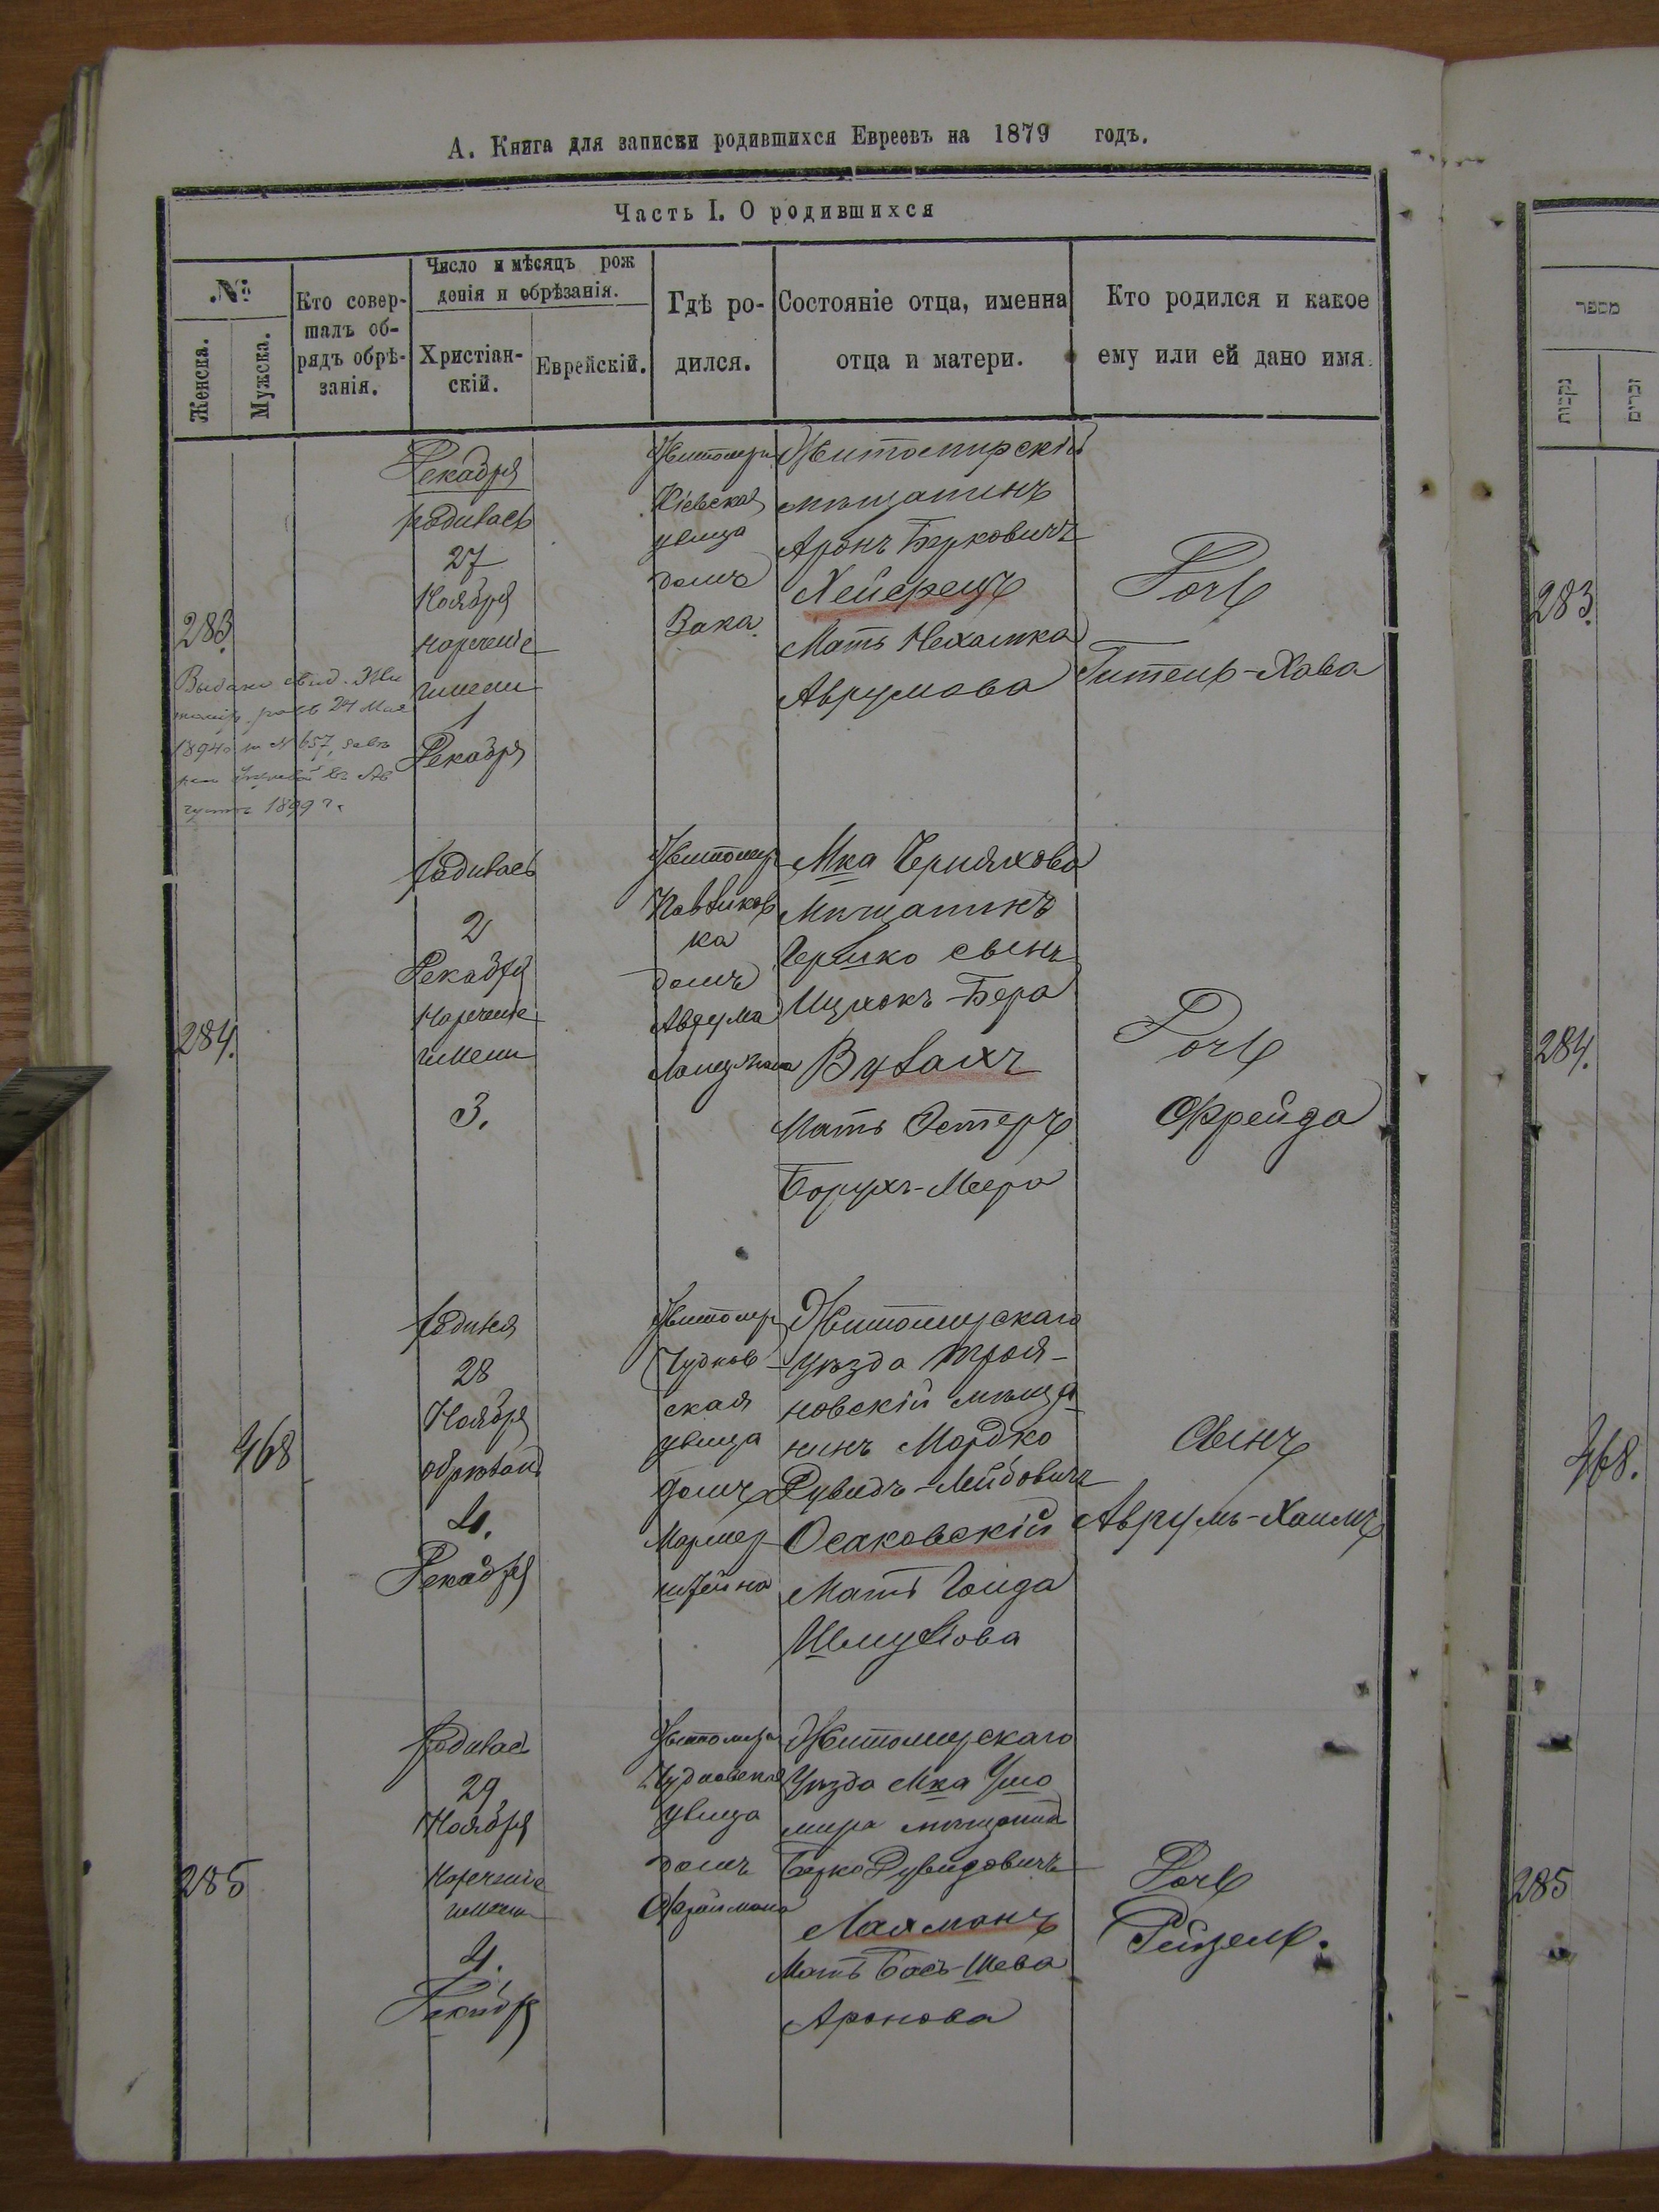 А. Книга для записки родившихся Евреевъ на 1879 годъ.
Часть I. О родившихся
№
Женска.
Мужска.
Кто совер-
шалъ об-
рядъ обрѣ-
занія.
Число и мѣсяцъ рож
денія и обрѣзанія.
Христіан-
скій.
Еврейскій.
Гдѣ ро-
дился.
Состояніе отца, именна
отца и матери.
Кто родился и какое
ему или ей дано имя.
283.
Декабря
родилась
27
Ноября
нареченіе
имени
1
Декабря
Житомиръ
Кіевская
улица
домъ
Вака.
Житомирскій
мѣщанинъ
Аронъ Берковичъ
Хейерецъ
Мать Нехамка
Аврумова
Дочь
Гитель-Хава
Выдано свид. Жи
24 Мая
1894 № 657,
въ Ав
густѣ 1899 г.
284.
родилась
2
Декабря
Нареченіе
имени
3.
Житомир
Павликов
ка
домъ
Аврума
Мка Черняхова
Мѣщанинъ
Гершко сынъ
Ицхокъ-Бера
Вулахъ
Мать Эстеръ
Борухъ-Меера
Дочь
Фрейда
468
родился
28
Ноября
обрѣзанъ
4.
Декабря
Житомиръ
Чуднов
ская
улица
домъ
Мармер
штейна
Житомирскаго
уѣзда Троя-
новскій мѣща
нинъ Мордко
Дувидъ-Лейбовичъ
Осаковскій
Мать Гоида
Шмулiова
Сынъ
Аврумъ-Хаимъ
285
родилась
29
Ноября
Нареченіе
имени
4.
Декабря
Житомиръ
Чудновская
улица
домъ
Фраймана
Житомирскаго
Уѣзда Мка Ушо
мира мѣщанинъ
Берко Дувидовичъ
Лахманъ
Мать Бась-Шева
Аронова
Дочь
Рейзель.
מספר
נקבות
זכרים
283.
284.
468.
285